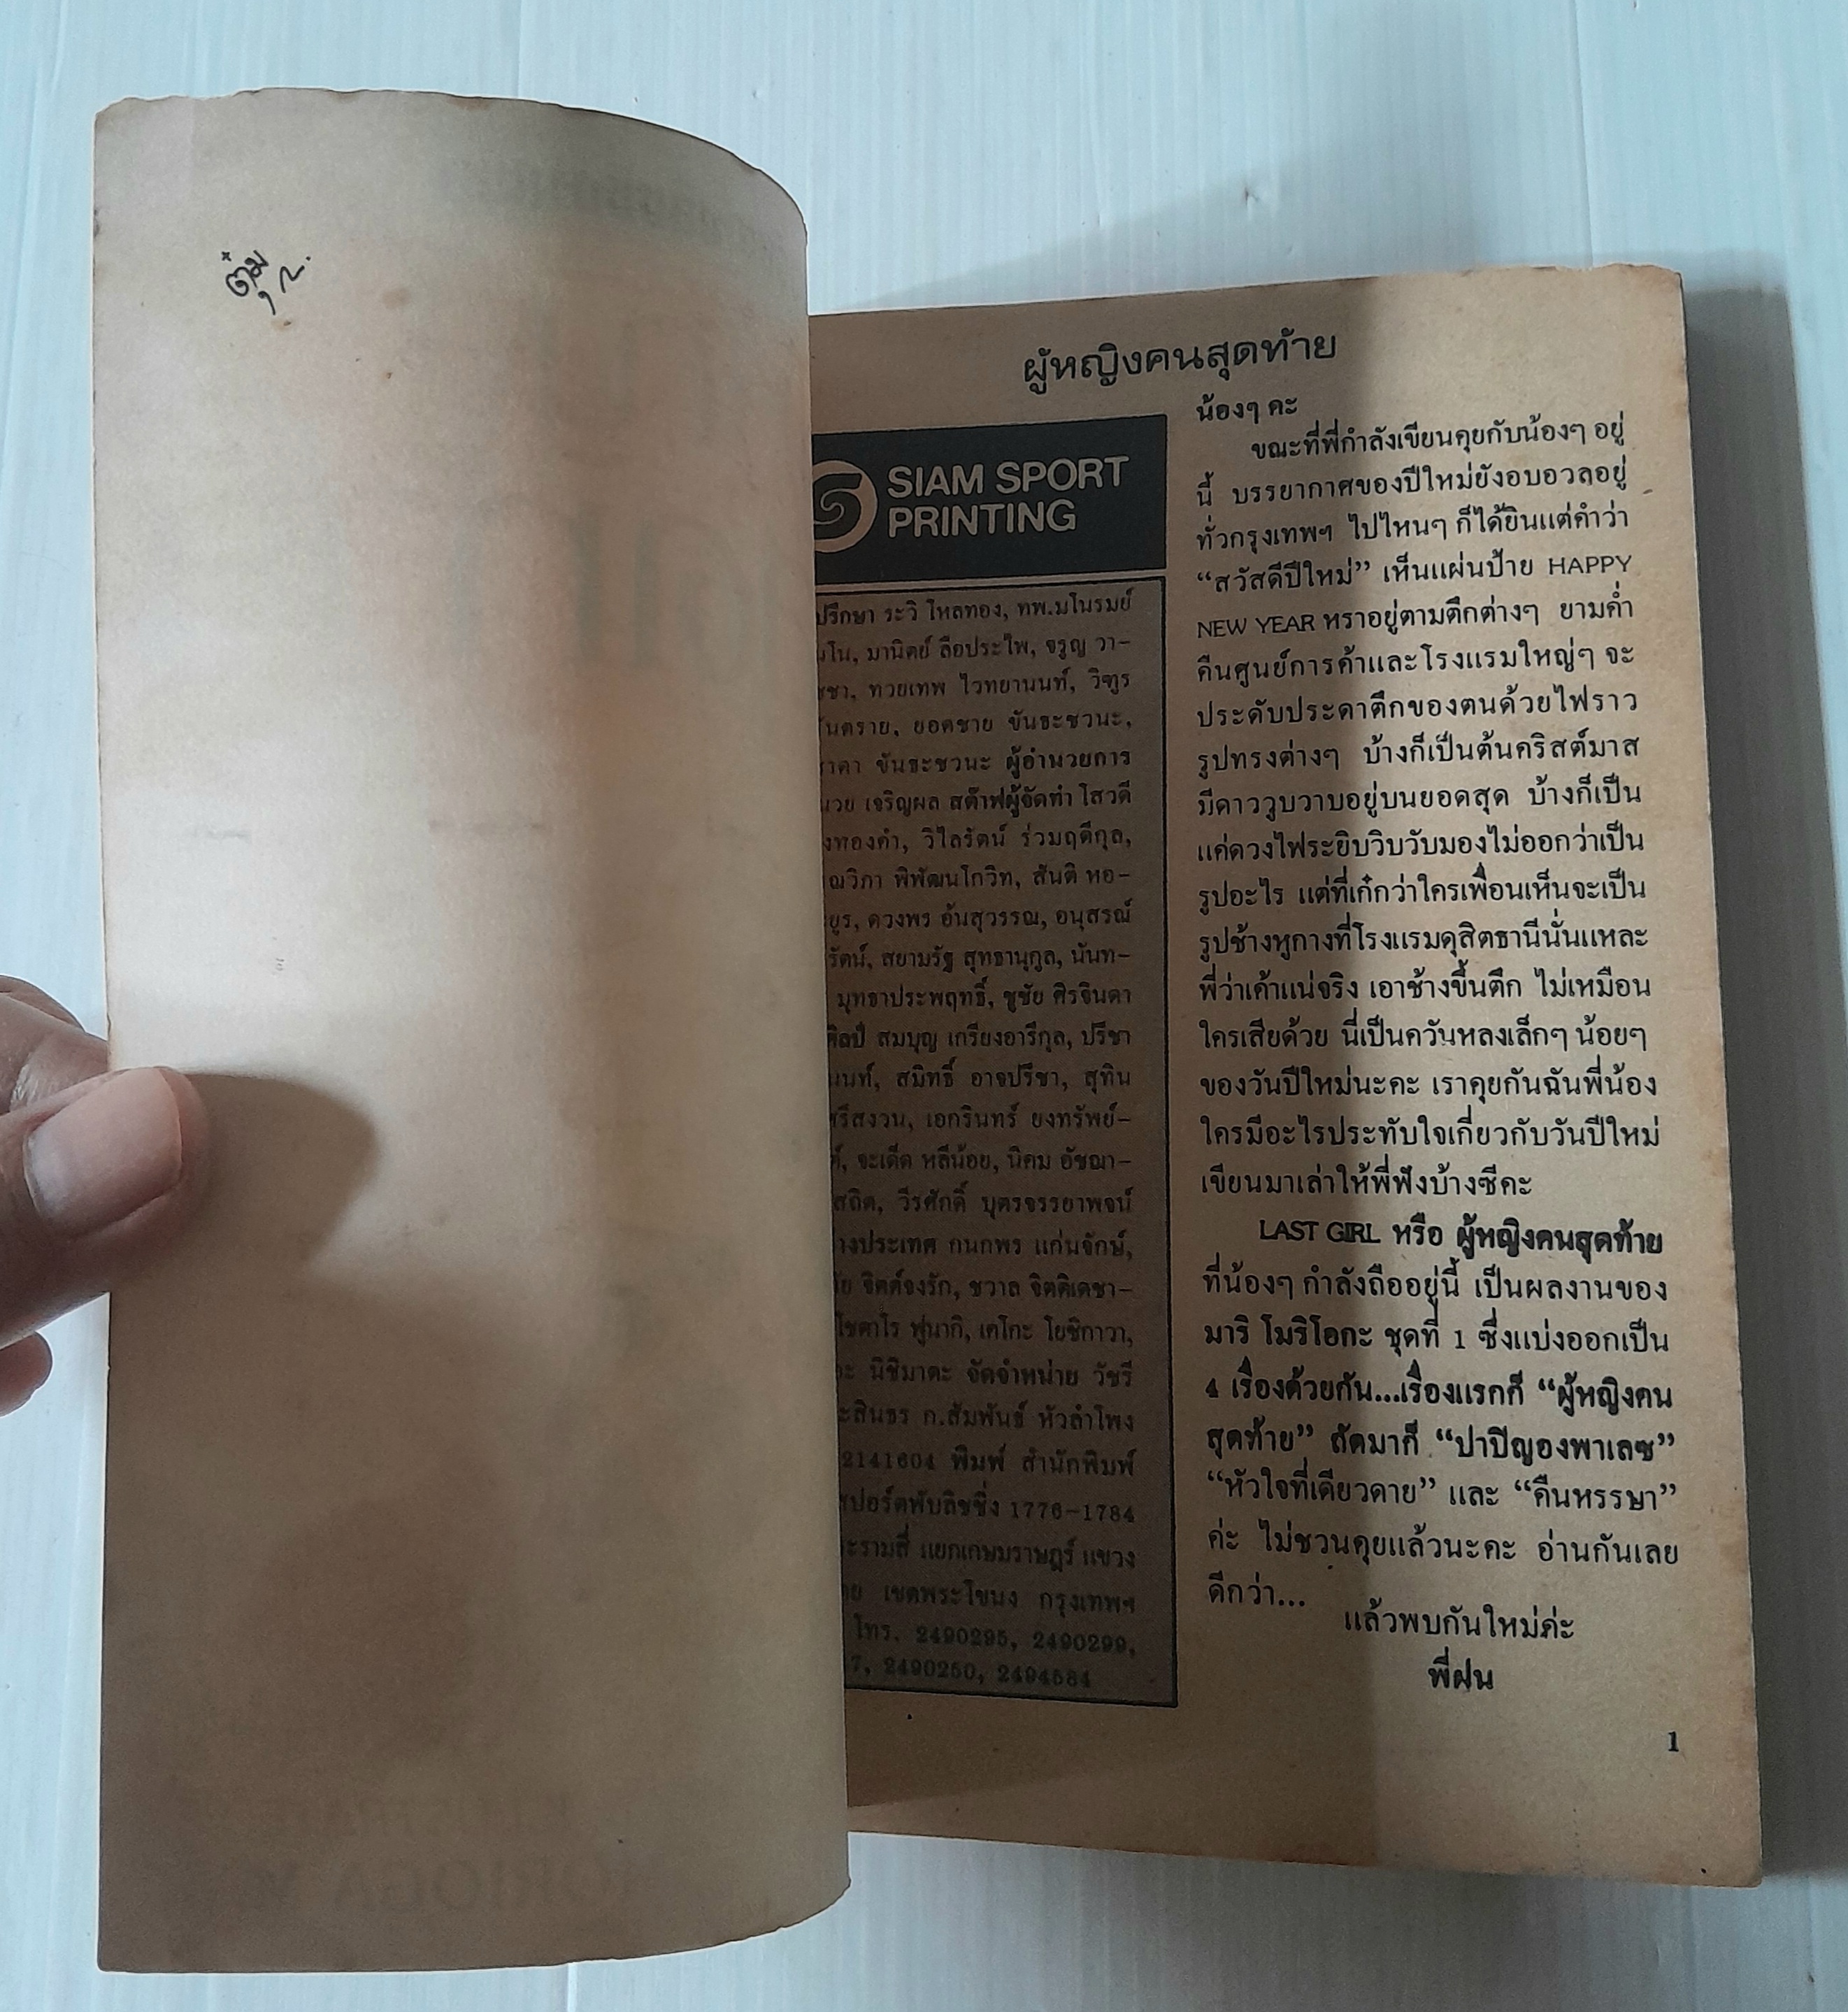 ตุ๋ม
ผู้หญิงคนสุดท้าย
SIAM SPORT
PRINTING
ปรึกษา ระวิ โหลทอง, ทพ.มโนรมย์
มานิตย์ ลือประไพ, จรูญ วา-
ทวยเทพ ไวทยานนท์, วิฑูร
ยอดชาย ขันธะชวนะ,
ขันธะชวนะ ผู้อำนวยการ
เจริญผล สต๊าฟผู้จัดทำ โสวดี
วิไลรัตน์ ร่วมฤดีกูล,
พิพัฒนโกวิท, สันติ หอ-
ดวงพร อันสุวรรณ, อนุสรณ์
รัตน์, สยามรัฐ สุทธานุกูล, นันท-
มุทธาประพฤทธิ์, ชูชัย ศิรจินดา
ศิลป์ สมบุญ เกรียงอารีกุล, ปรีชา
สมิทธิ์ อาจปรีชา, สุทิน
ศรีสงวน, เอกรินทร์ ยงทรัพย์-
จะเด็ด หลีน้อย, นิคม อัชฌา-
วีรศักดิ์ บุตรจรรยาพจน์
างประเทศ กนกพร แก่นจักษ์,
จิตต์จงรัก, ชวาล จิตติเดชา-
ฟูนากิ, เคโกะ โยชิกาวา,
นิชิมาตะ จัดจำหน่าย วัชรี
ะสินธร ก.สัมพันธ์ หัวลำโพง
2141604 พิมพ์ สำนักพิมพ์
สปอร์ตพับลิชชิ่ง 1776-1784
ะรามสี่ แยกเกษมราษฎร์ แขวง
เขตพระโขนง กรุงเทพฯ
โทร. 2490295, 2490299,
7, 2490250, 2494584
น้องๆ คะ
ขณะที่พี่กำลังเขียนคุยกับน้องๆ อยู่
นี้ บรรยากาศของปีใหม่ยังอบอวลอยู่
ทั่วกรุงเทพฯ ไปไหนๆ ก็ได้ยินแต่คำว่า
“สวัสดีปีใหม่” เห็นแผ่นป้าย HAPPY
NEW YEAR หราอยู่ตามตึกต่างๆ ยามค่ำ
คืนศูนย์การค้าและโรงแรมใหญ่ๆ จะ
ประดับประดาตึกของตนด้วยไฟราว
รูปทรงต่างๆ บ้างก็เป็นต้นคริสต์มาส
มีดาววูบวาบอยู่บนยอดสุด บ้างก็เป็น
แค่ดวงไฟระยิบวิบวับมองไม่ออกว่าเป็น
รูปอะไร แต่ที่เก๋กว่าใครเพื่อนเห็นจะเป็น
รูปช้างหูกางที่โรงแรมดุสิตธานีนั่นแหละ
พี่ว่าเค้าแน่จริง เอาช้างขึ้นตึก ไม่เหมือน
ใครเสียด้วย นี่เป็นควันหลงเล็กๆ น้อยๆ
ของวันปีใหม่นะคะ เราคุยกันฉันพี่น้อง
ใครมีอะไรประทับใจเกี่ยวกับวันปีใหม่
เขียนมาเล่าให้พี่ฟังบ้างซีคะ
LAST GIRL หรือ ผู้หญิงคนสุดท้าย
ที่น้องๆ กำลังถืออยู่นี้ เป็นผลงานของ
มาริ โมริโอกะ ชุดที่ 1 ซึ่งแบ่งออกเป็น
4 เรื่องด้วยกัน...เรื่องแรกก็ “ผู้หญิงคน
สุดท้าย” ถัดมาก็ “ปาปีญองพาเลซ”
“หัวใจที่เดียวดาย” และ “คืนหรรษา”
ค่ะ ไม่ชวนคุยแล้วนะคะ อ่านกันเลย
ดีกว่า...
แล้วพบกันใหม่ค่ะ
พี่ฝน
1